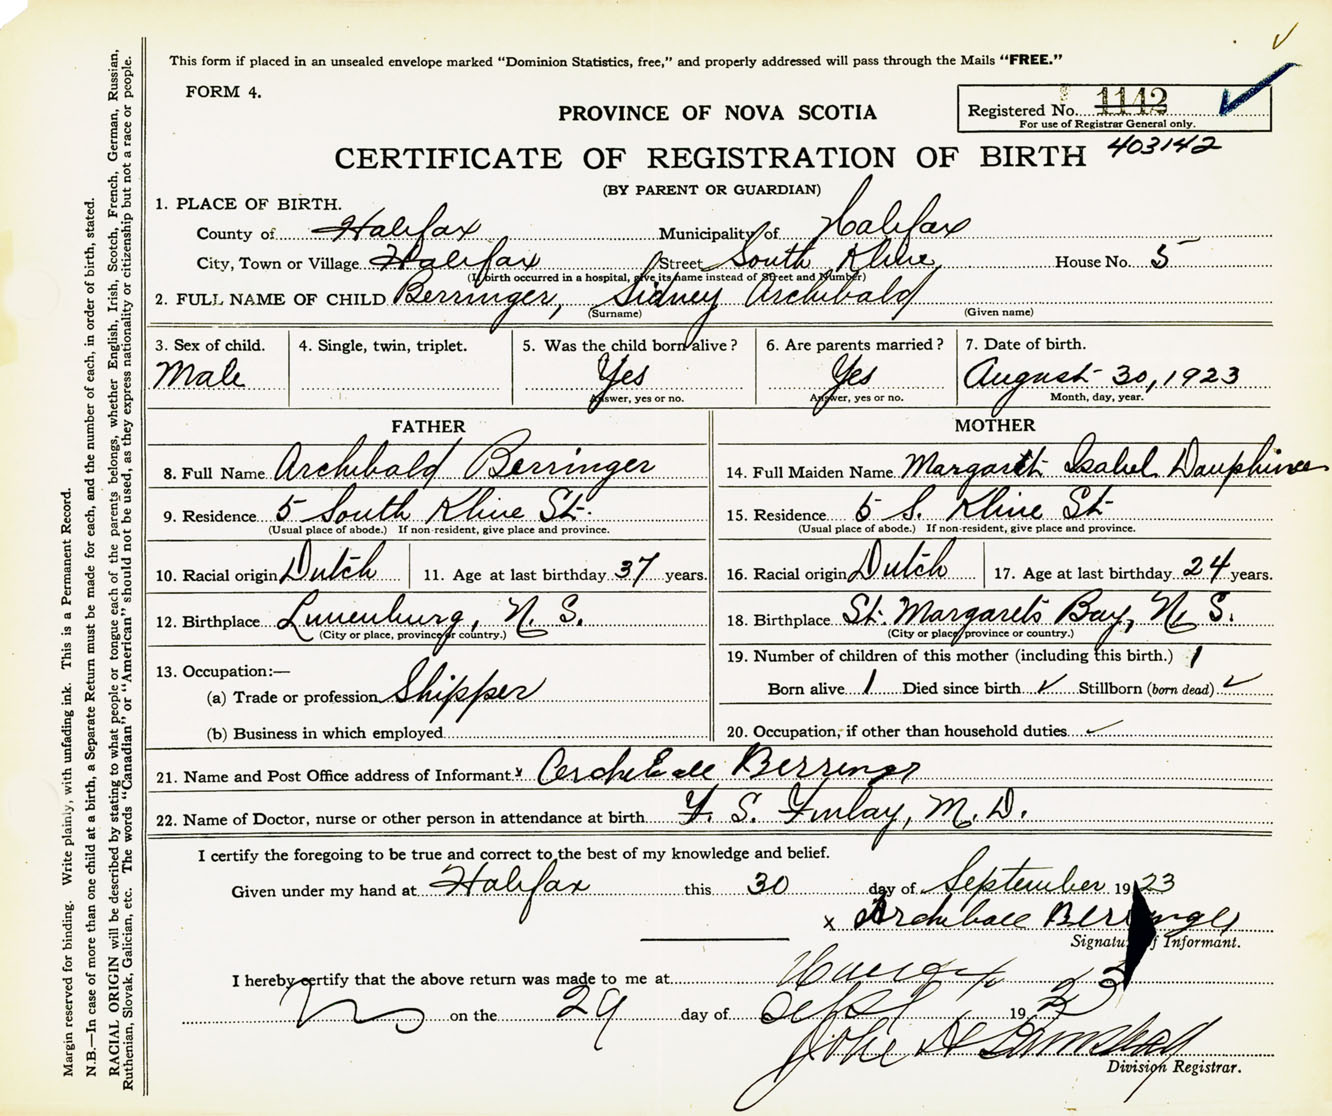 This form if placed in an unsealed envelope marked "Dominion Statistics, free," and properly addressed will pass through the Mails "FREE."
FORM 4.
PROVINCE OF NOVA SCOTIA
Registered No. 1142
For use of Registrar General only.
403142
CERTIFICATE OF REGISTRATION OF BIRTH
(BY PARENT OR GUARDIAN)
1. PLACE OF BIRTH.
County of Halifax Municipality of Halifax
City, Town or Village Halifax Street South Kline House No. 5
(If birth occurred in a hospital, give its name instead of Street and Number)
2. FULL NAME OF CHILD Berringer, Sidney Archibald
(Surname) (Given name)
3. Sex of child. 4. Single, twin, triplet. 5. Was the child born alive? 6. Are parents married? 7. Date of birth.
Male Yes Yes August 30, 1923
Answer, yes or no. Answer, yes or no. Month, day, year.
FATHER MOTHER
8. Full Name Archibald Berringer 14. Full Maiden Name Margaret Isabel Dauphinee
9. Residence 5 South Kline St. 15. Residence 5 S. Kline St
(Usual place of abode.) If non-resident, give place and province. (Usual place of abode.) If non-resident, give place and province.
10. Racial origin Dutch 11. Age at last birthday 37 years. 16. Racial origin Dutch 17. Age at last birthday 24 years.
12. Birthplace Lunenburg, N. S. 18. Birthplace St. Margarets Bay, N. S.
(City or place, province or country.) (City or place province or country.)
13. Occupation:— 19. Number of children of this mother (including this birth.) 1
(a) Trade or profession Shipper Born alive 1 Died since birth ✓ Stillborn (born dead) ✓
(b) Business in which employed 20. Occupation, if other than household duties ✓
21. Name and Post Office address of Informant x Berringr
22. Name of Doctor, nurse or other person in attendance at birth F. S. Finlay, M. D.
I certify the foregoing to be true and correct to the best of my knowledge and belief.
Given under my hand at Halifax this 30 day of September 1923
x
Signature of Informant.
I hereby certify that the above return was made to me at
on the 29 day of Sept 1923
Division Registrar.
Margin reserved for binding. Write plainly, with unfading ink. This is a Permanent Record.
N.B.—In case of more than one child at a birth, a Separate Return must be made for each, and the number of each, in order of birth, stated.
RACIAL ORIGIN will be described by stating to what people or tongue each of the parents belongs, whether English, Irish, Scotch, French, German, Russian,
Ruthenian, Slovak, Galician, etc. The words "Canadian" or "American" should not be used, as they express nationality or citizenship but not a race or people.